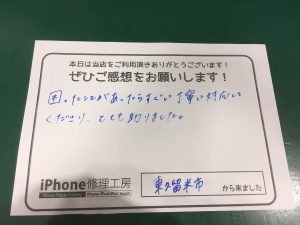 本日は当店をご利用頂きありがとうございます！
ぜひご感想をお願いします！
困ったことがあったらすぐに丁寧に対応して
くださり、とても助りました。
iPhone修理工房
iPhone Repair Factory
iPhone/iPad/iPod touch
東久留米市
から来ました